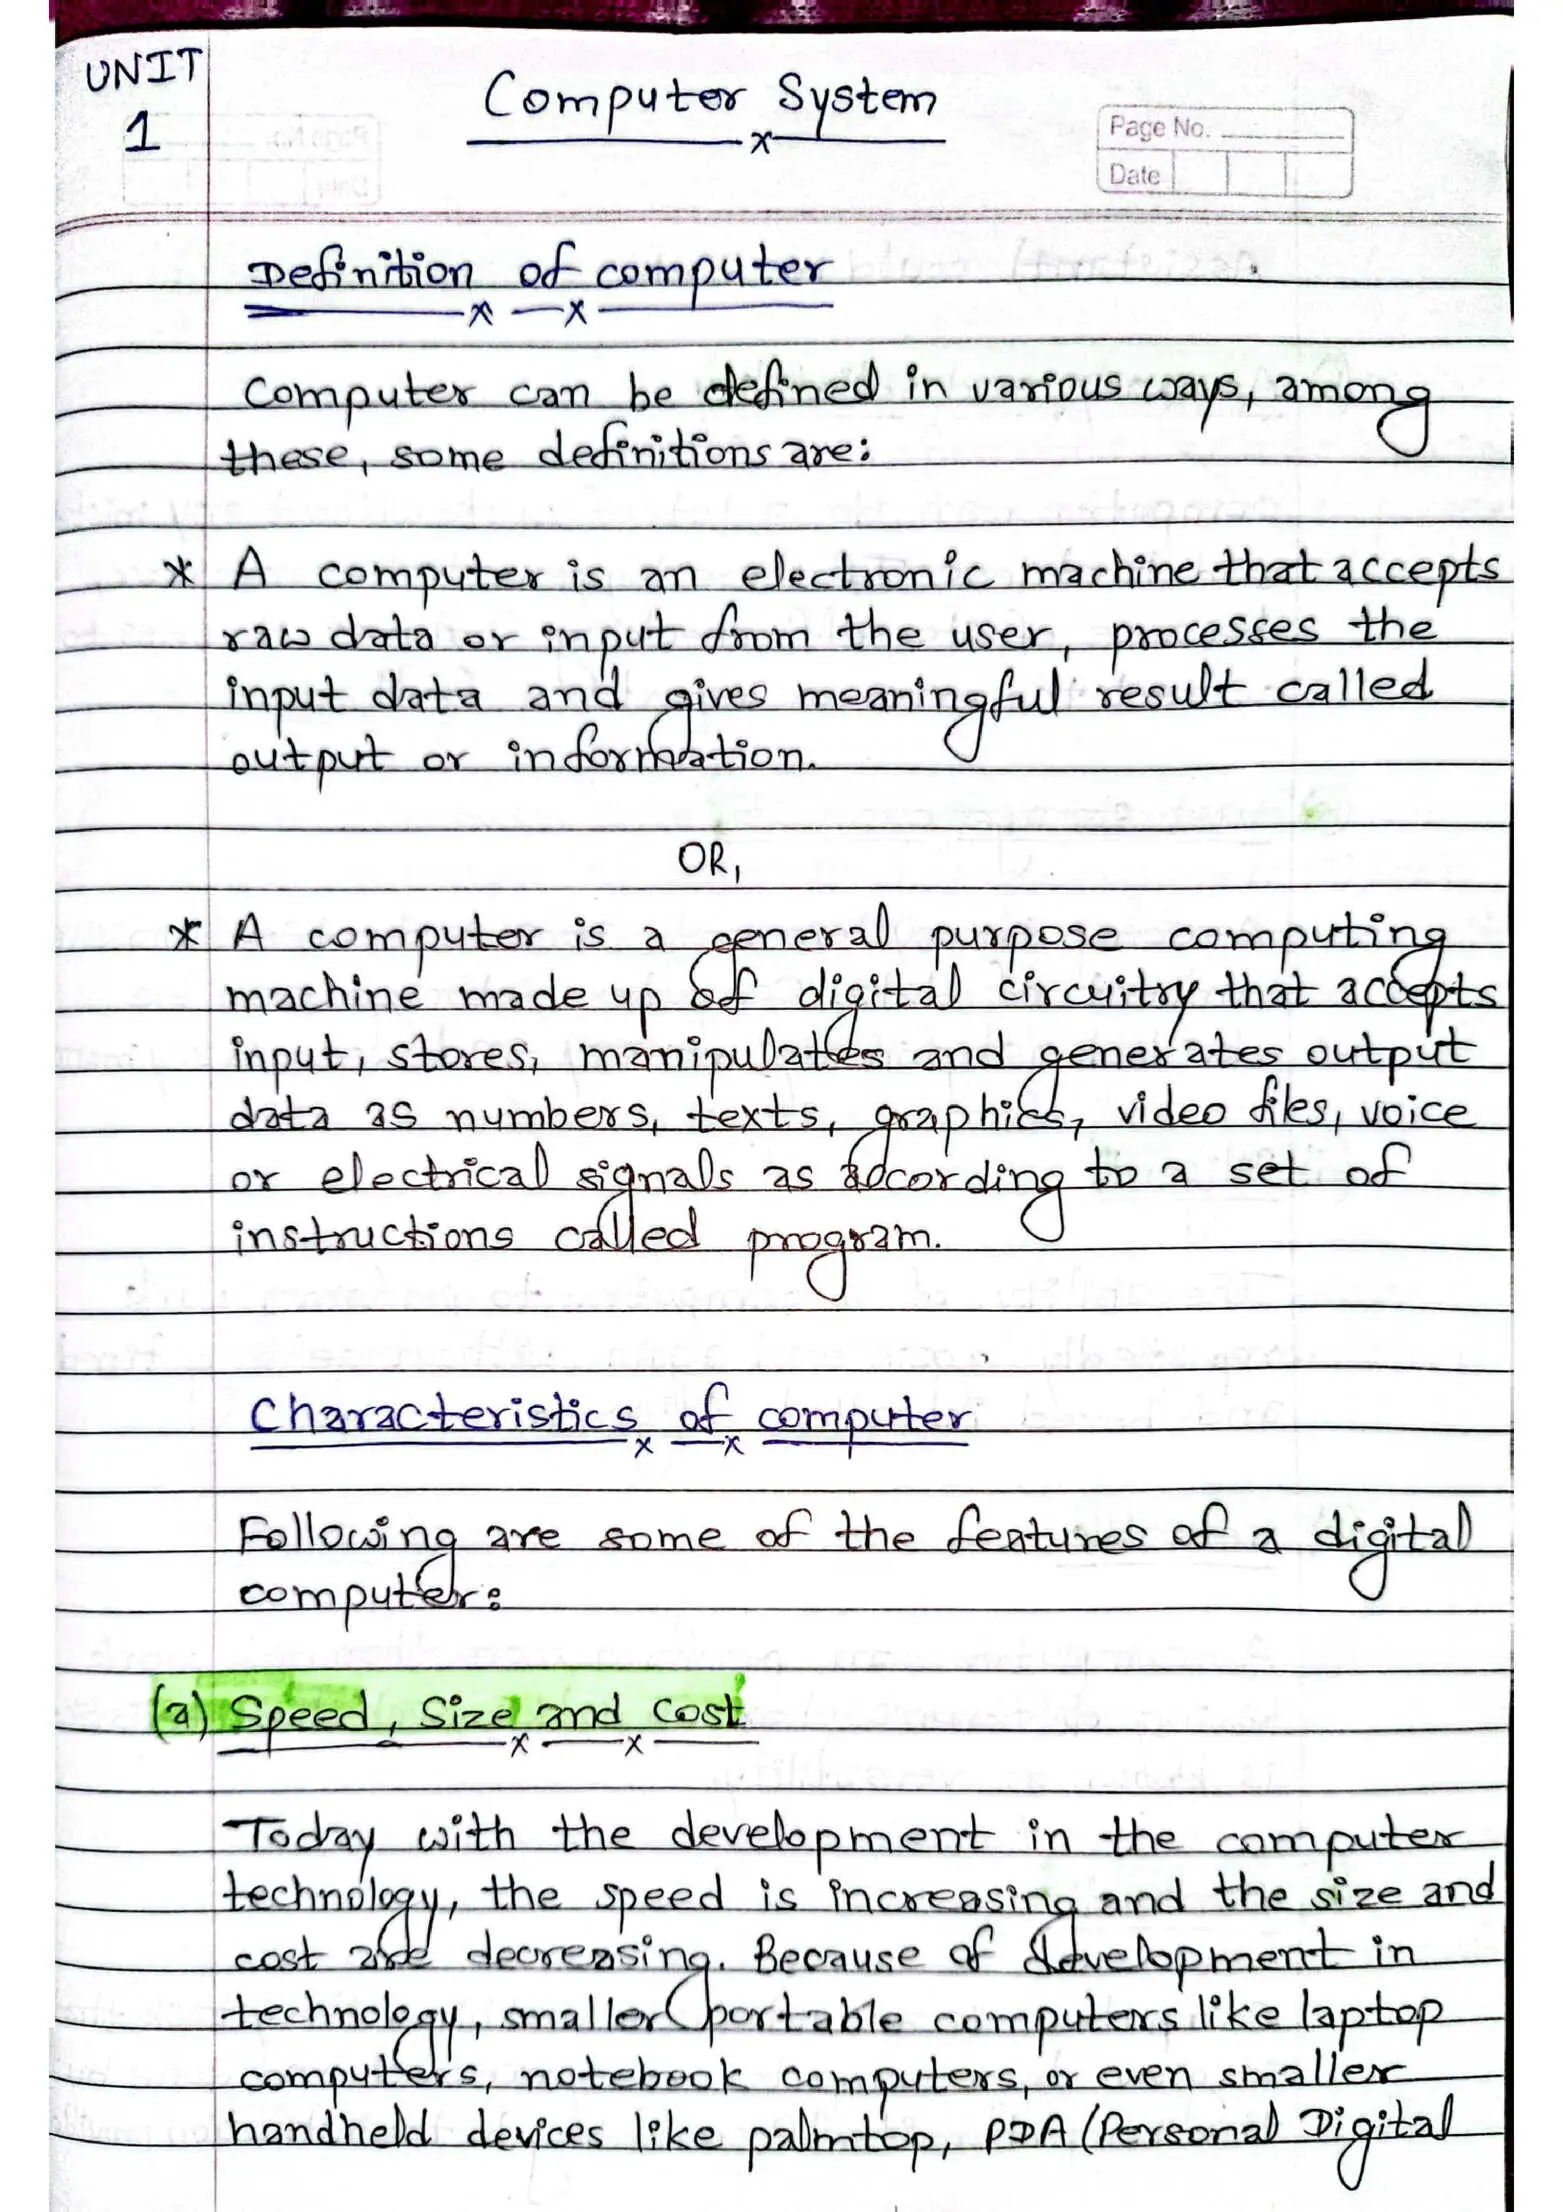 UNIT
1
Computer System
Page No.
Date
Definition of computer
Computer can be defined in various ways, among
these, some definitions are:
* A computer is an electronic machine that accepts
raw data or input from the user, processes the
input data and gives meaningful result called
output or information.
OR,
* A computer is a general purpose computing
machine made up of digital circuitry that accepts
input, stores, manipulates and generates output
data as numbers, texts, graphics, video files, voice
or electrical signals as according to a set of
instructions called program.
Characteristics of computer
Following are some of the features of a digital
computer:
(a) Speed, Size and Cost
Today with the development in the computer
technology, the speed is increasing and the size and
cost are decreasing. Because of development in
technology, smaller portable computers like laptop
computers, notebook computers, or even smaller
handheld devices like palmtop, PDA (Personal Digital